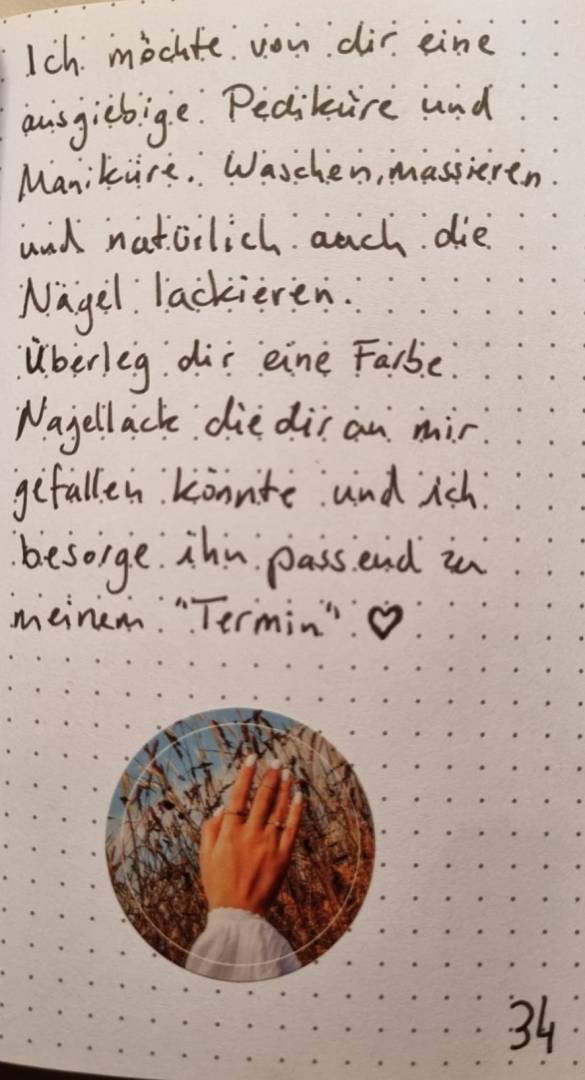 Ich möchte von dir eine
ausgiebige Pediküre und
Maniküre. Waschen, massieren
und natürlich auch die
Nägel lackieren.
Überleg dir eine Farbe
Nagellack die dir an mir
gefallen könnte und ich
besorge ihn passend zu
meinem "Termin" ♡
34